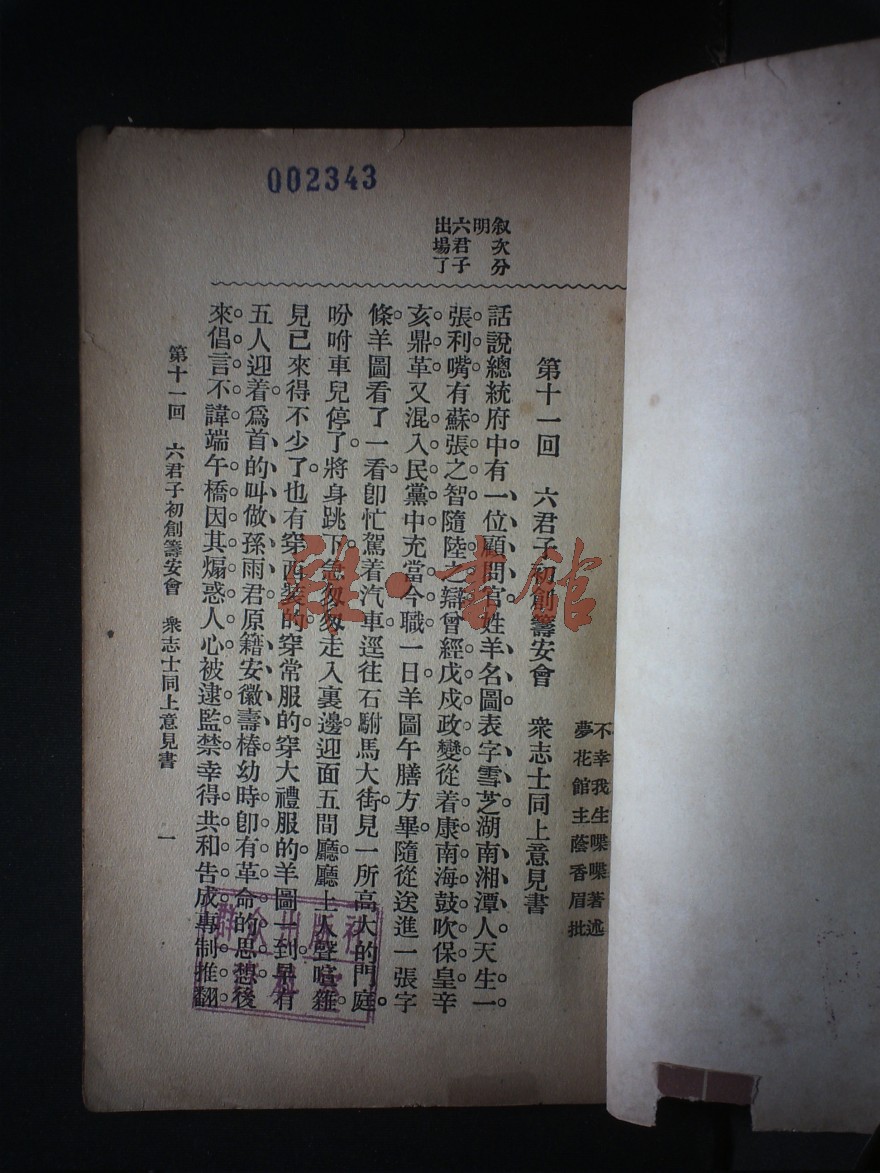 002343
不幸我生喋喋著述
夢花館主蔭香眉批
第十一回　六君子初創籌安會　衆志士同上意見書
叙次分
明
六君子
出場了
話說總統府中有一位顧問官姓羊名圖表字雪芝湖南湘潭人天生一
張利嘴有蘇張之智隨陸之辯曾經戊戌政變從着康南海鼓吹保皇辛
亥鼎革又混入民黨中充當今職一日羊圖午膳方畢隨從送進一張字
條羊圖看了一看卽忙駕着汽車逕往石駙馬大街見一所高大的門庭
吩咐車兒停了將身跳下急匆匆走入裏邊迎面五間廳廳上人聲喧雜
見已來得不少了也有穿西裝的穿常服的穿大禮服的羊圖一到早有
五人迎着爲首的叫做孫雨君原籍安徽壽椿幼時卽有革命的思想後
來倡言不諱端午橋因其煽惑人心被逮監禁幸得共和告成專制推翻
第十一回　六君子初創籌安會　衆志士同上意見書　一
群众出版社
雜·書館